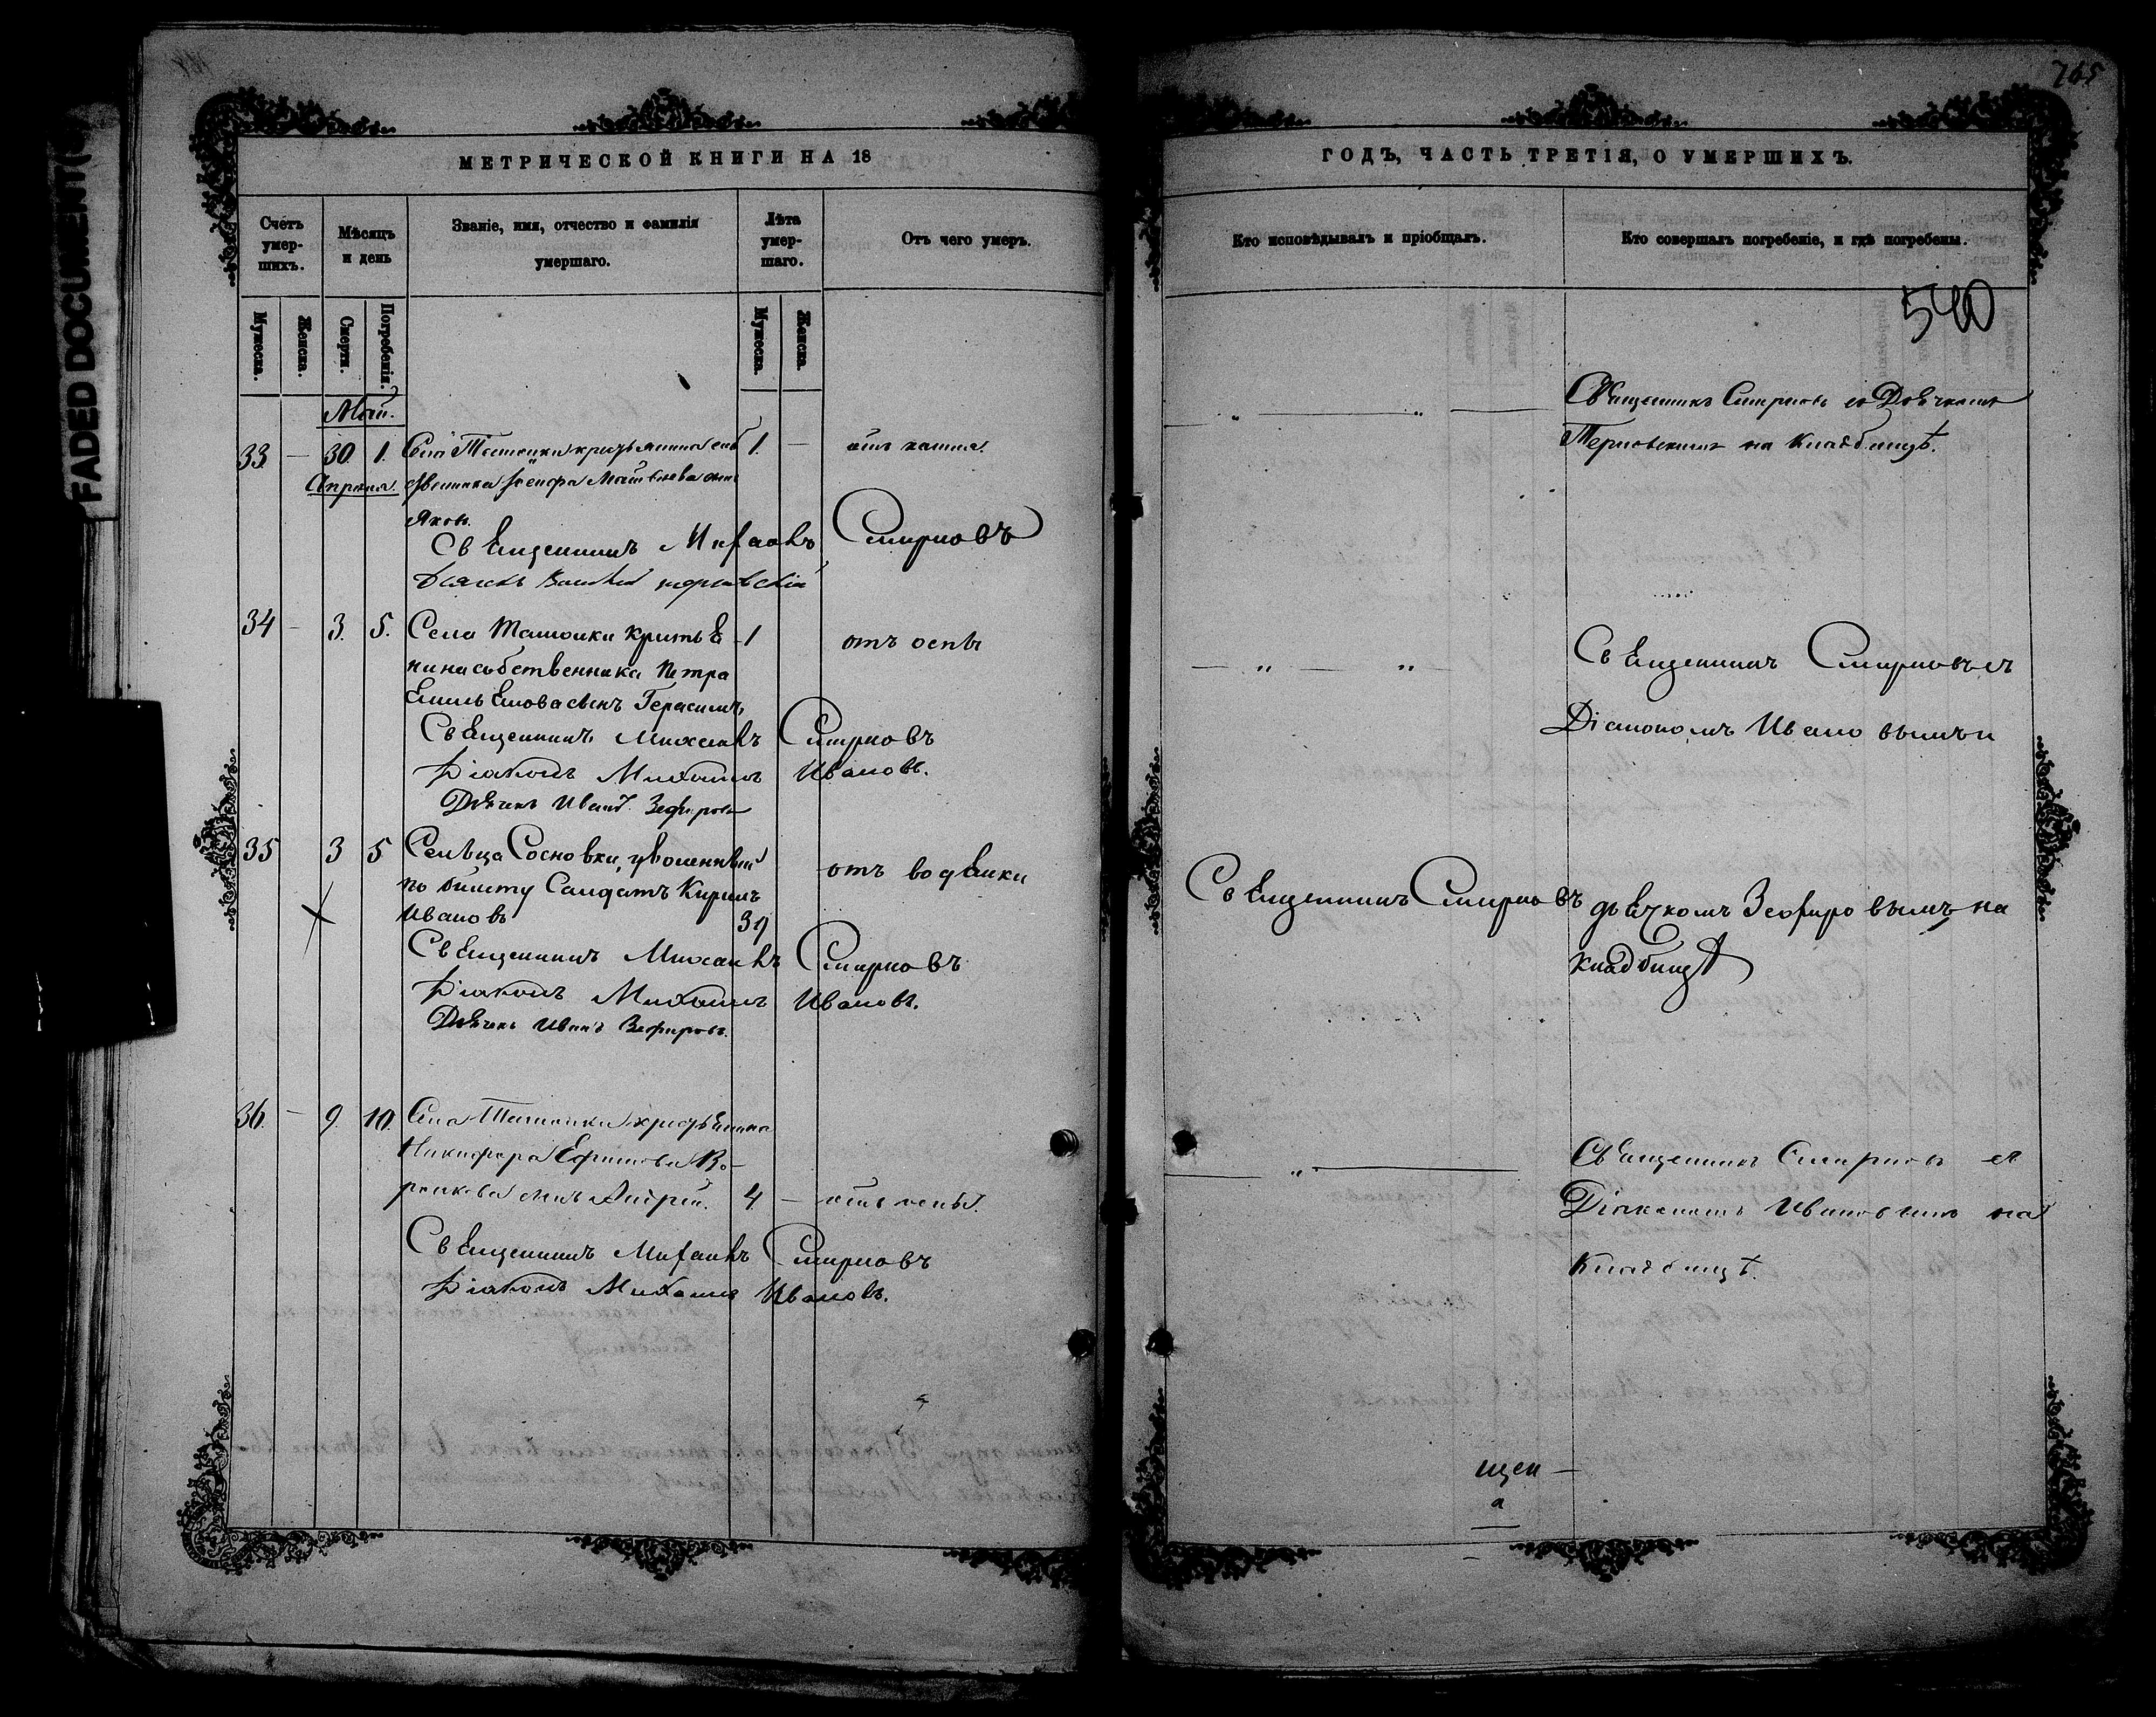 FADED DOCUMENT
МЕТРИЧЕСКОЙ КНИГИ НА 18
Счетъ умершихъ.
Мѣсяцъ и день
Званіе, имя, отчество и фамилія умершаго.
Лѣта умершаго.
Отъ чего умеръ.
Мужеска.
Женска.
Смерти.
Погребенія.
Мужеска.
Женска.
Май.
33. — 30. 1. Села крестьянина 1. — отъ кашля.
Апрѣля. Іосифа Матвѣева сынъ
Яковъ.
Священникъ Михаилъ Смирновъ
34 — 3. 5. Села Ташолки крестья 1 отъ оспы
нина собственника Петра
Емельянова сынъ Герасимъ
Священникъ Михаилъ Смирновъ
Діаконъ Михаилъ Ивановъ.
Дьячекъ Иванъ Зефировъ
35 3 5 Сельца Сосновки, уволенный отъ водянки
по билету Салдатъ Кирилъ
Ивановъ 39
Священникъ Михаилъ Смирновъ
Діаконъ Михаилъ Ивановъ.
Дьячекъ Иванъ Зефировъ.
36. — 9. 10. Села Ташолки крестьянина
Никифора Ефимова Во-
ронкова сынъ Андрей. 4. — отъ оспы.
Священникъ Михаилъ Смирновъ
Діаконъ Михаилъ Ивановъ.
765
ГОДЪ, ЧАСТЬ ТРЕТІЯ, О УМЕРШИХЪ.
Кто исповѣдывалъ и пріобщалъ.
Кто совершалъ погребеніе, и гдѣ погребены.
540
Священникъ Смирновъ съ Дьячкомъ
Терновскимъ на кладбищѣ.
Священникъ Смирновъ съ
Діакономъ Ивановымъ и
Священникъ Смирновъ дьячкомъ Зефировымъ на
кладбищѣ
Священникъ Смирновъ съ
Діакономъ Ивановымъ на
Кладбищѣ.
щен —
а